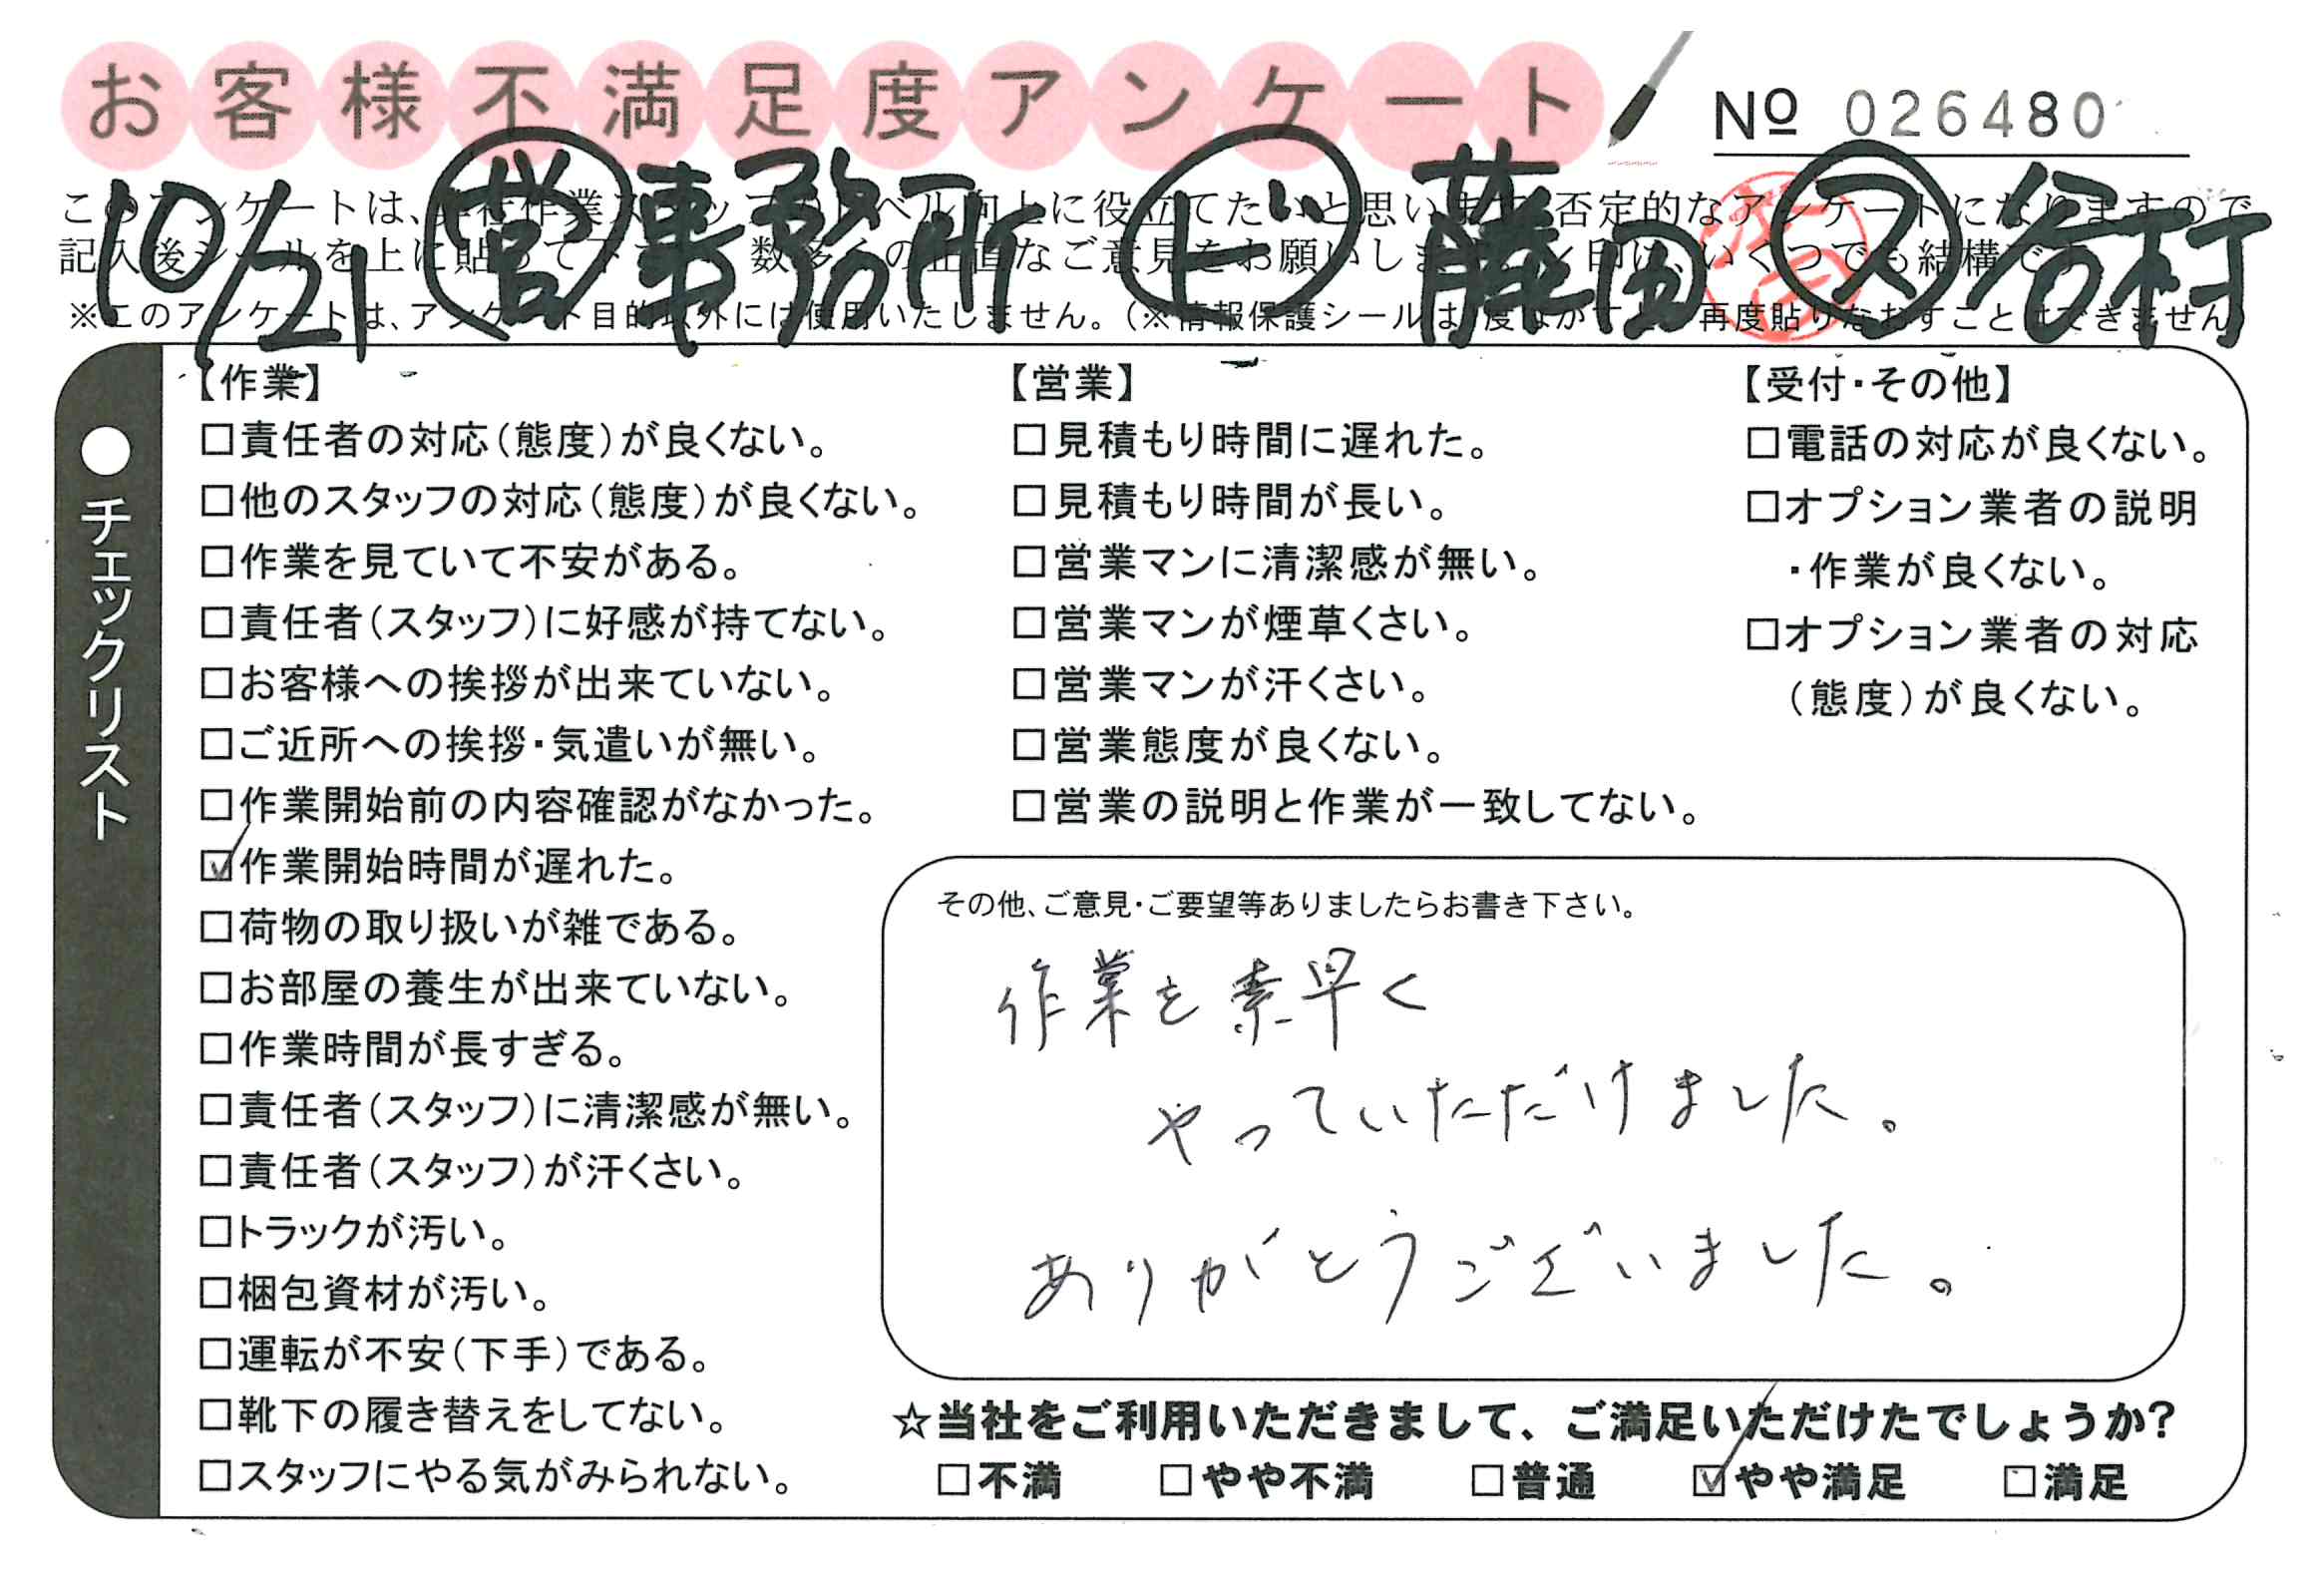 お客様不満足度アンケート
No 026480
10/21 営 事務所 ビ 藤田 ス 谷村
このアンケートは、
記入後シールを上に貼って下
※このアンケートは、アンケート目的以外には使用いたしません。（※情報保護シールは
● チェックリスト
【作業】
□責任者の対応（態度）が良くない。
□他のスタッフの対応（態度）が良くない。
□作業を見ていて不安がある。
□責任者（スタッフ）に好感が持てない。
□お客様への挨拶が出来ていない。
□ご近所への挨拶・気遣いが無い。
□作業開始前の内容確認がなかった。
☑作業開始時間が遅れた。
□荷物の取り扱いが雑である。
□お部屋の養生が出来ていない。
□作業時間が長すぎる。
□責任者（スタッフ）に清潔感が無い。
□責任者（スタッフ）が汗くさい。
□トラックが汚い。
□梱包資材が汚い。
□運転が不安（下手）である。
□靴下の履き替えをしてない。
□スタッフにやる気がみられない。
【営業】
□見積もり時間に遅れた。
□見積もり時間が長い。
□営業マンに清潔感が無い。
□営業マンが煙草くさい。
□営業マンが汗くさい。
□営業態度が良くない。
□営業の説明と作業が一致してない。
【受付・その他】
□電話の対応が良くない。
□オプション業者の説明
・作業が良くない。
□オプション業者の対応
（態度）が良くない。
その他、ご意見・ご要望等ありましたらお書き下さい。
作業を素早く
やっていただけました。
ありがとうございました。
☆当社をご利用いただきまして、ご満足いただけたでしょうか？
□不満 □やや不満 □普通 ☑やや満足 □満足